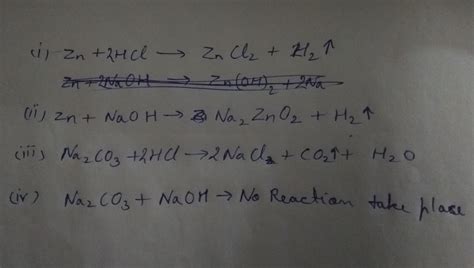 (i) Zn + 2HCl → ZnCl₂ + H₂↑
Zn + 2NaOH → Zn(OH)₂ + 2Na
(ii) Zn + NaOH → Na₂ZnO₂ + H₂↑
(iii) Na₂CO₃ + 2HCl → 2NaCl + CO₂↑ + H₂O
(iv) Na₂CO₃ + NaOH → No Reaction take place